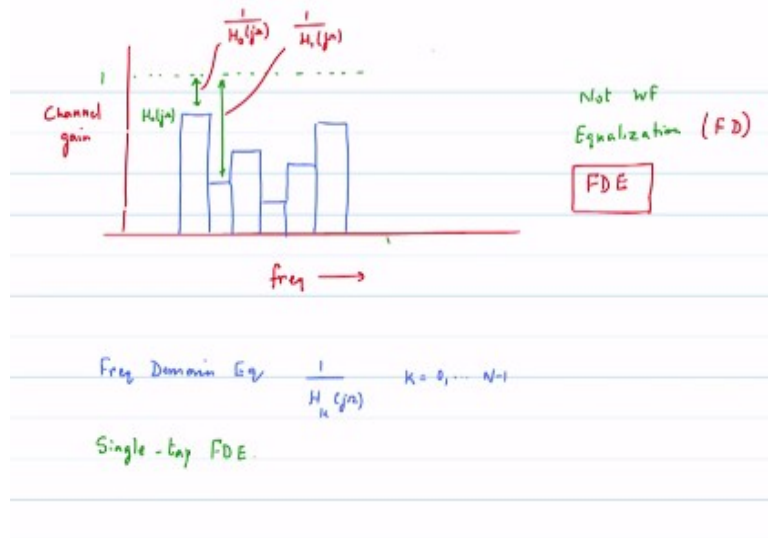 1 / H₀(jΩ)
1 / H₁(jΩ)
1
Channel
gain
H₀(jΩ)
freq →
Not WF
Equalization (FD)
FDE
Freq Domain Eq 1 / Hₖ(jΩ) K = 0, ... N-1
Single-tap FDE.